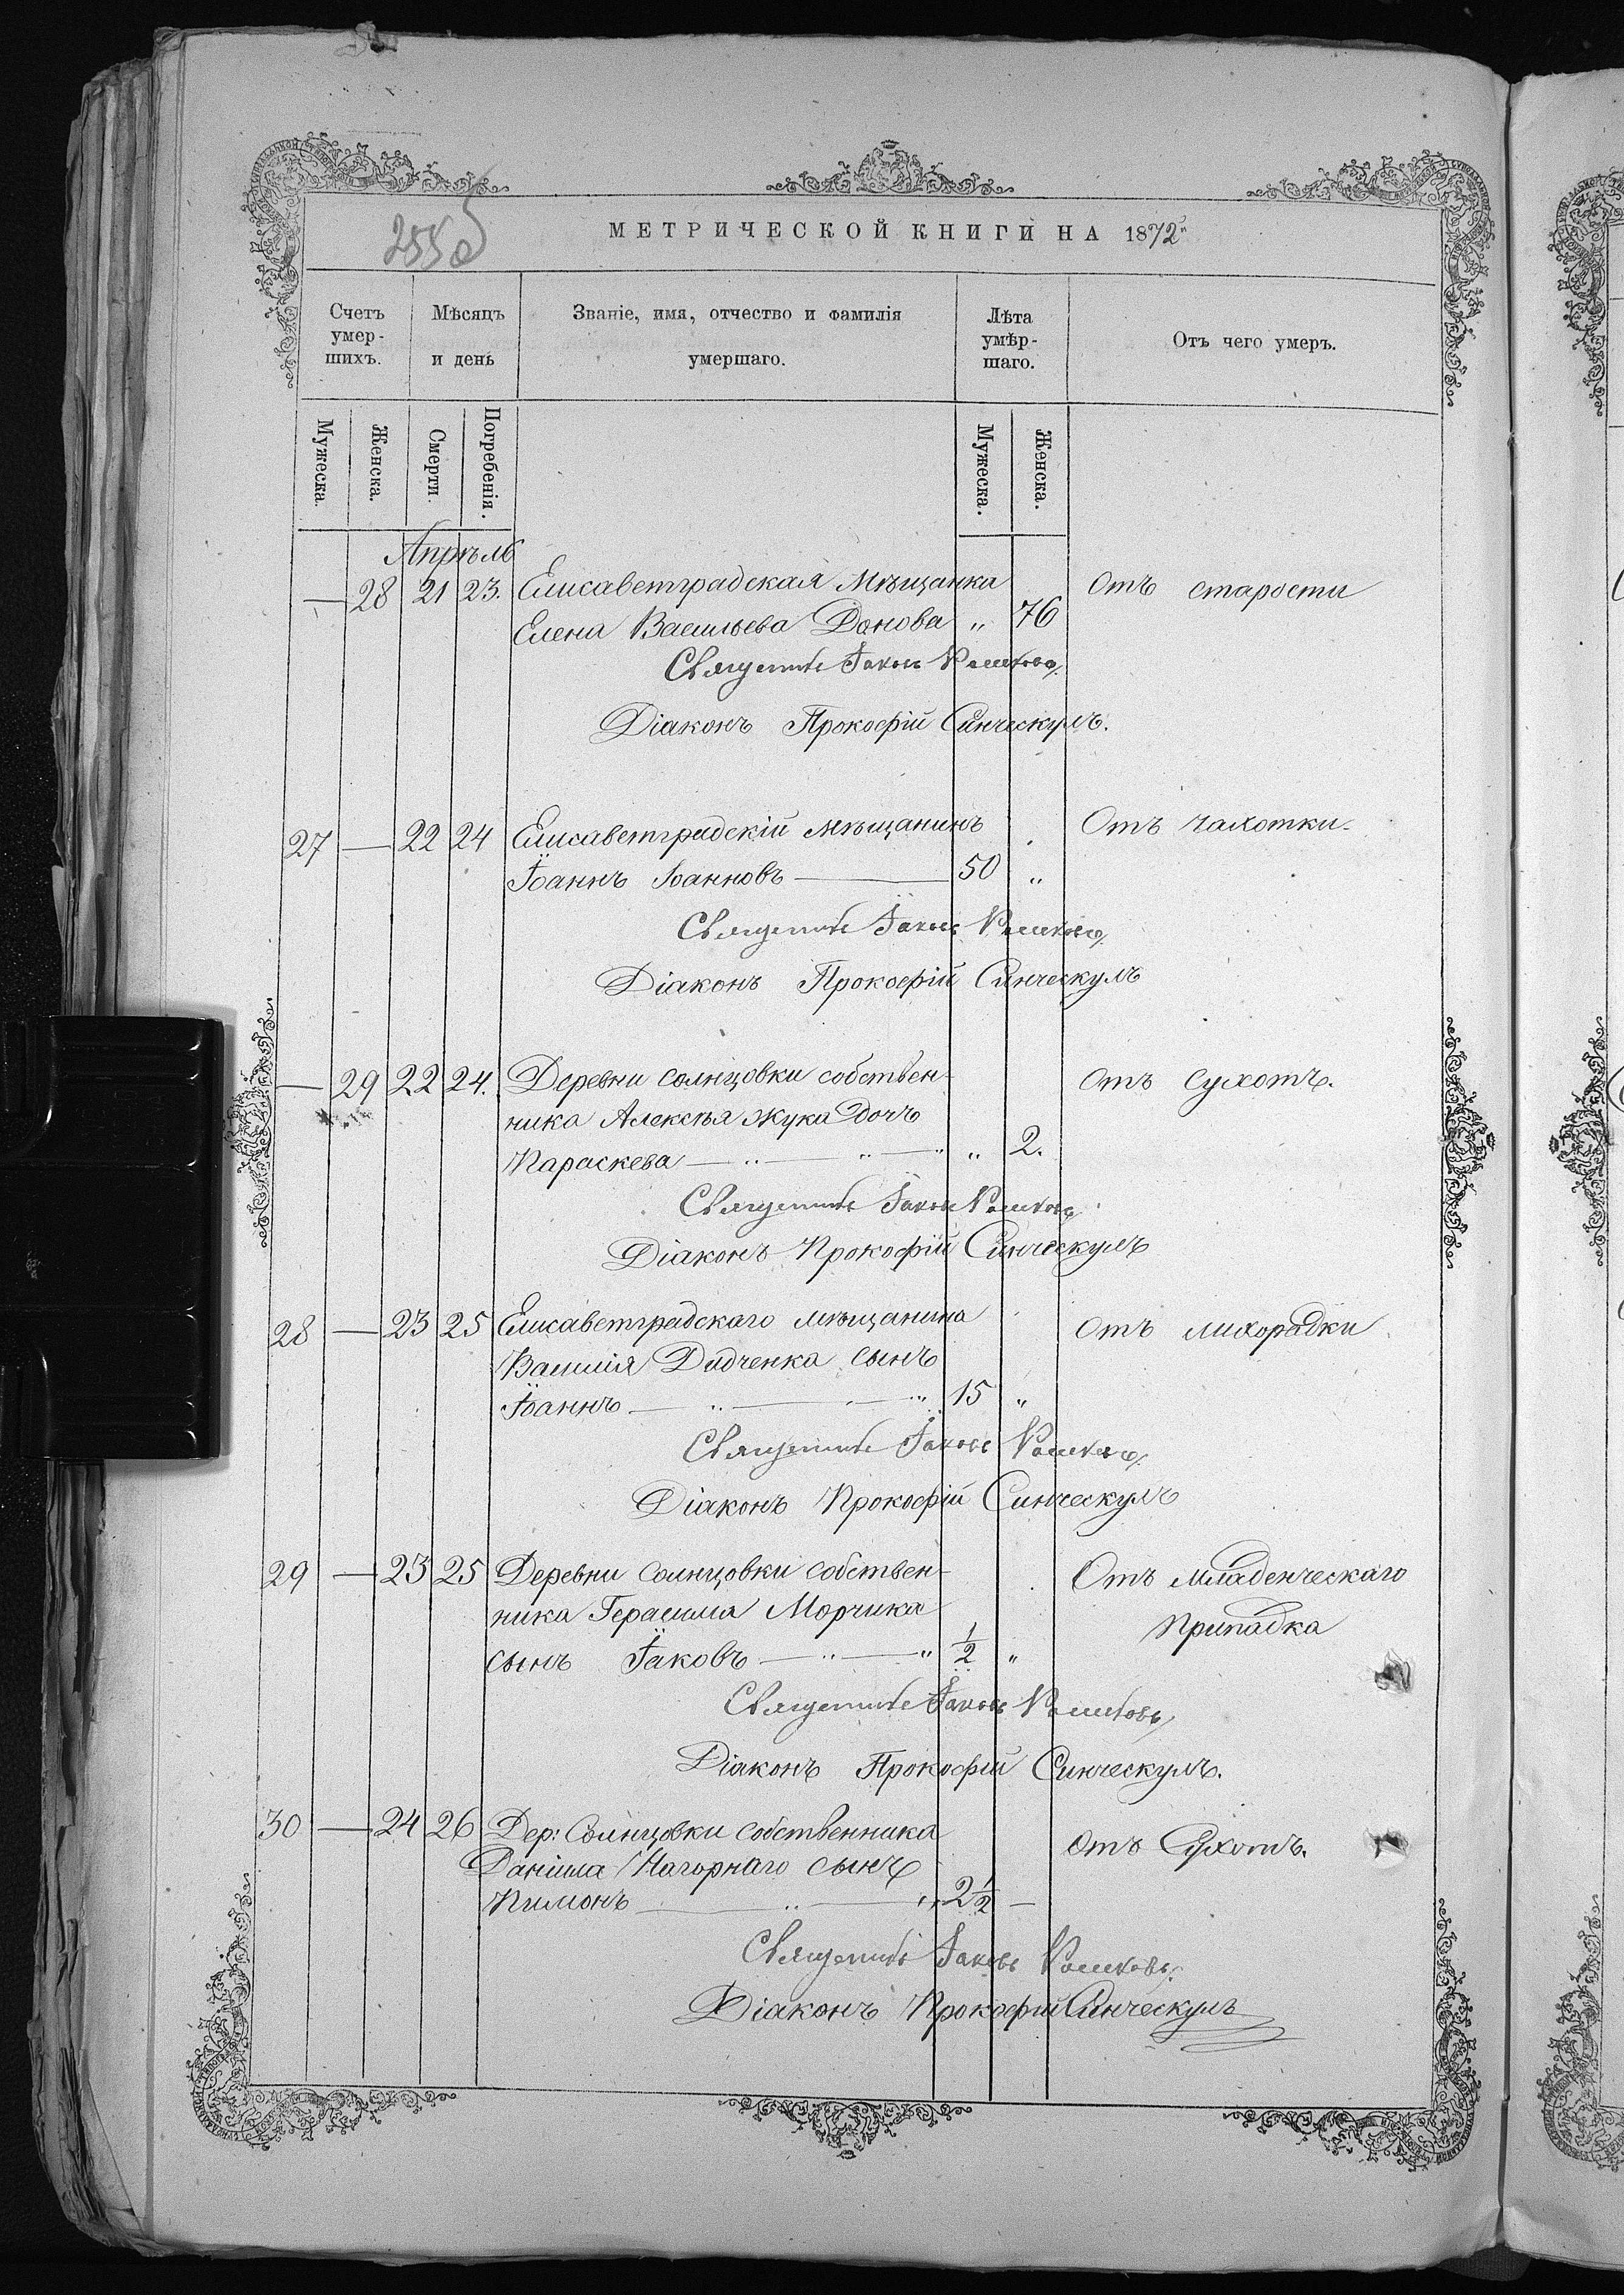 255 об
МЕТРИЧЕСКОЙ КНИГИ НА 1872
Счетъ умер-шихъ.
Мѣсяцъ и день
Званіе, имя, отчество и фамилія умершаго.
Лѣта умѣр-шаго.
Отъ чего умеръ.
Мужеска.
Женска.
Смерти.
Погребенія.
Мужеска.
Женска.
Апрѣль
— 28 21 23. Елисаветградская Мѣщанка Отъ старости
Елена Васильева Донова „ 76
Священникъ Іаковъ
Діаконъ Прокофій Синческулъ.
27 — 22 24 Елисаветградскій мѣщанинъ Отъ чахотки.
Іоаннъ Іоанновъ — 50 „
Священникъ Іаковъ
Діаконъ Прокофій Синческулъ
— 29 22 24. Деревни Солнцовки собствен- Отъ сухотъ.
ника Алексѣя Жука дочь
Параскева — „ — „ — „ „ 2.
Священникъ Іаковъ
Діаконъ Прокофій Синческулъ
28 — 23 25 Елисаветградскаго мѣщанина Отъ лихорадки
Василія Дидченка сынъ
Іоаннъ — „ — „ 15 „
Священникъ Іаковъ
Діаконъ Прокофій Синческулъ
29 — 23 25 Деревни Солнцовки собствен- Отъ младенческаго
ника Герасима Морчика припадка
сынъ Іаковъ — „ — „ 1/2 „
Священникъ Іаковъ
Діаконъ Прокофій Синческулъ.
30 — 24 26 Дер: Солнцовки собственника Отъ Сухотъ.
Даніила Нагорнаго сынъ
Пимонъ — „ — „ 2 1/2 —
Священникъ Іаковъ
Діаконъ Прокофій Синческулъ